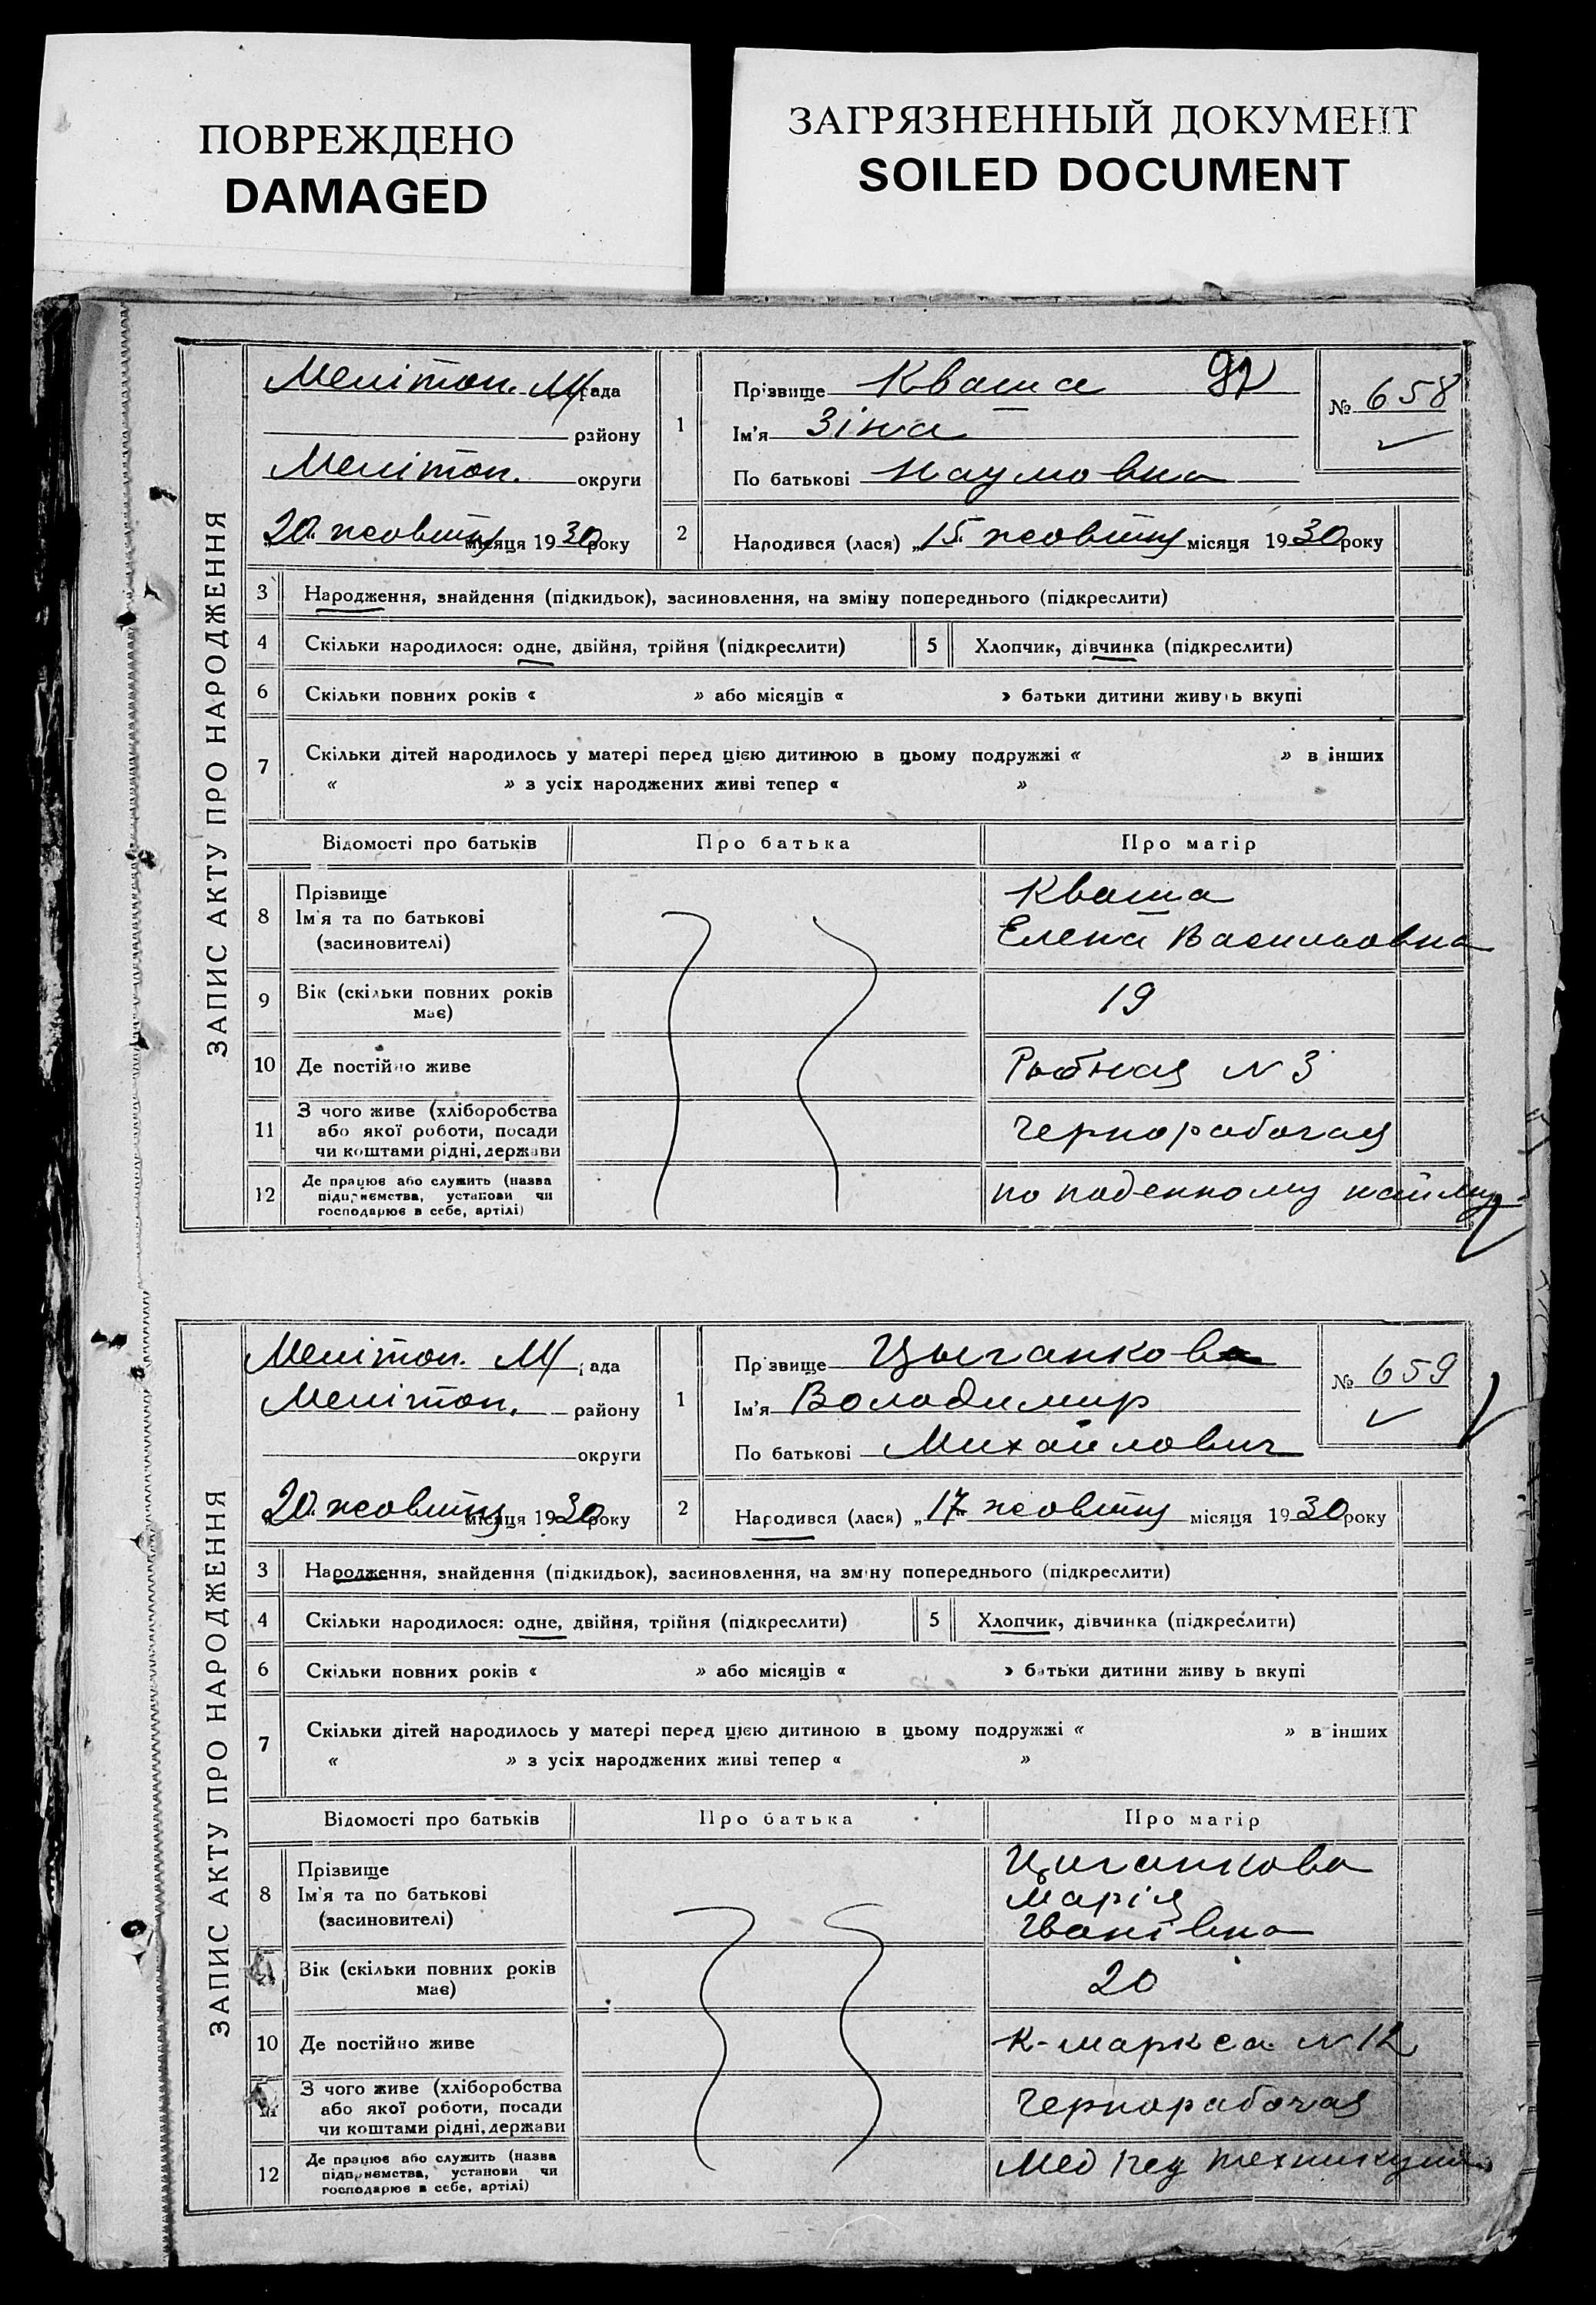 ПОВРЕЖДЕНО
DAMAGED
ЗАГРЯЗНЕННЫЙ ДОКУМЕНТ
SOILED DOCUMENT
ЗАПИС АКТУ ПРО НАРОДЖЕННЯ
Мелітоп. М/рада
району
Мелітоп. округи
„20" жовтня місяця 1930 року
1
Прізвище Кваша
Ім'я Зіна
По батькові Наумовна
№ 658
2
Народився (лася) „15" жовтня місяця 1930 року
3 Народження, знайдення (підкидьок), засиновлення, на зміну попереднього (підкреслити)
4 Скільки народилося: одне, двійня, трійня (підкреслити) 5 Хлопчик, дівчинка (підкреслити)
6 Скільки повних років « » або місяців « » батьки дитини живуть вкупі
7 Скільки дітей народилось у матері перед цією дитиною в цьому подружжі « » в інших
« » з усіх народжених живі тепер « »
Відомості про батьків Про батька Про матір
8 Прізвище
Ім'я та по батькові
(засиновителі)
Кваша
Елена Васильовна
9 Вік (скільки повних років
має)
19
10 Де постійно живе Рыбная N 3
11 З чого живе (хліборобства
або якої роботи, посади
чи коштами рідні, держави
Чернорабочая
12 Де працює або служить (назва
підприємства, установи чи
господарює в себе, артілі)
по поденному найму
ЗАПИС АКТУ ПРО НАРОДЖЕННЯ
Мелітоп. М/рада
Мелітоп. району
округи
„20" жовтня місяця 1930 року
1
Прізвище Цыганков
Ім'я Володимир
По батькові Михайлович
№ 659
2
Народився (лася) „17" жовтня місяця 1930 року
3 Народження, знайдення (підкидьок), засиновлення, на зміну попереднього (підкреслити)
4 Скільки народилося: одне, двійня, трійня (підкреслити) 5 Хлопчик, дівчинка (підкреслити)
6 Скільки повних років « » або місяців « » батьки дитини живуть вкупі
7 Скільки дітей народилось у матері перед цією дитиною в цьому подружжі « » в інших
« » з усіх народжених живі тепер « »
Відомості про батьків Про батька Про матір
8 Прізвище
Ім'я та по батькові
(засиновителі)
Циганкова
Марія
Іванівна
Вік (скільки повних років
має)
20
10 Де постійно живе К-Маркса N 12
11 З чого живе (хліборобства
або якої роботи, посади
чи коштами рідні, держави
Чернорабочая
12 Де працює або служить (назва
підприємства, установи чи
господарює в себе, артілі)
техникум